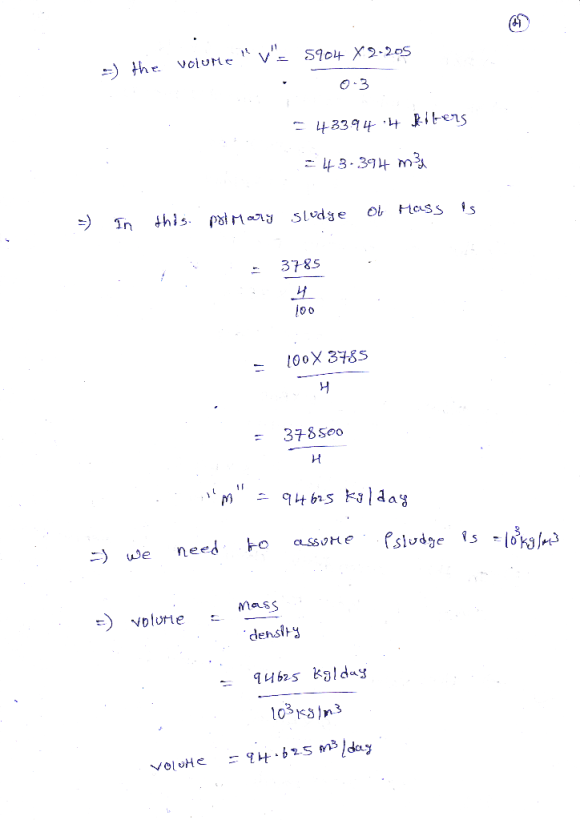 (4)
=) the volume "V" = 5904 X 2.205
0.3
= 43394.4 liters
= 43.394 m3
=) In this primary sludge of mass is
= 3785
4
100
= 100 X 3785
4
= 378500
4
"M" = 94625 kg/day
=) we need to assume ρsludge is = 10³kg/m3
=) volume = mass
density
= 94625 kg/day
10³ kg/m3
volume = 94.625 m³/day